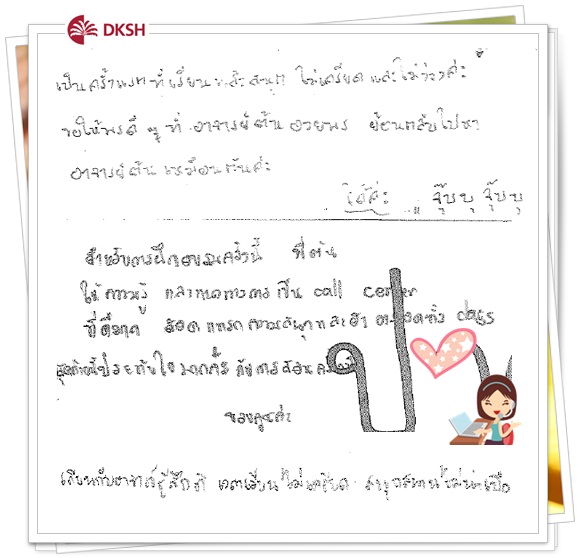 DKSH
เป็นครั้งแรกที่เรียนแล้วสนุก ไม่เครียด และไม่ง่วงค่ะ
ขอให้พรดี ๆ ที่ อาจารย์ต้น อวยพร ย้อนกลับไปหา
อาจารย์ต้น เหมือนกันค่ะ
ได้ค่ะ จุ๊บๆ จุ๊บๆ
สำหรับการฝึกอบรมครั้งนี้ พี่ต้น
ให้ความรู้ และแนวทางการเป็น call center
ที่ดีมาก สอดแทรกความสนุกและฮา ตลอดทั้ง days
สุดท้ายนี้ประทับใจมากค่ะ กับการสอนครั้งนี้
ขอบคุณค่ะ
เรียนกับอาจารย์รู้สึกดี เวลาเรียนไม่เครียด สนุกสนาน ไม่น่าเบื่อ